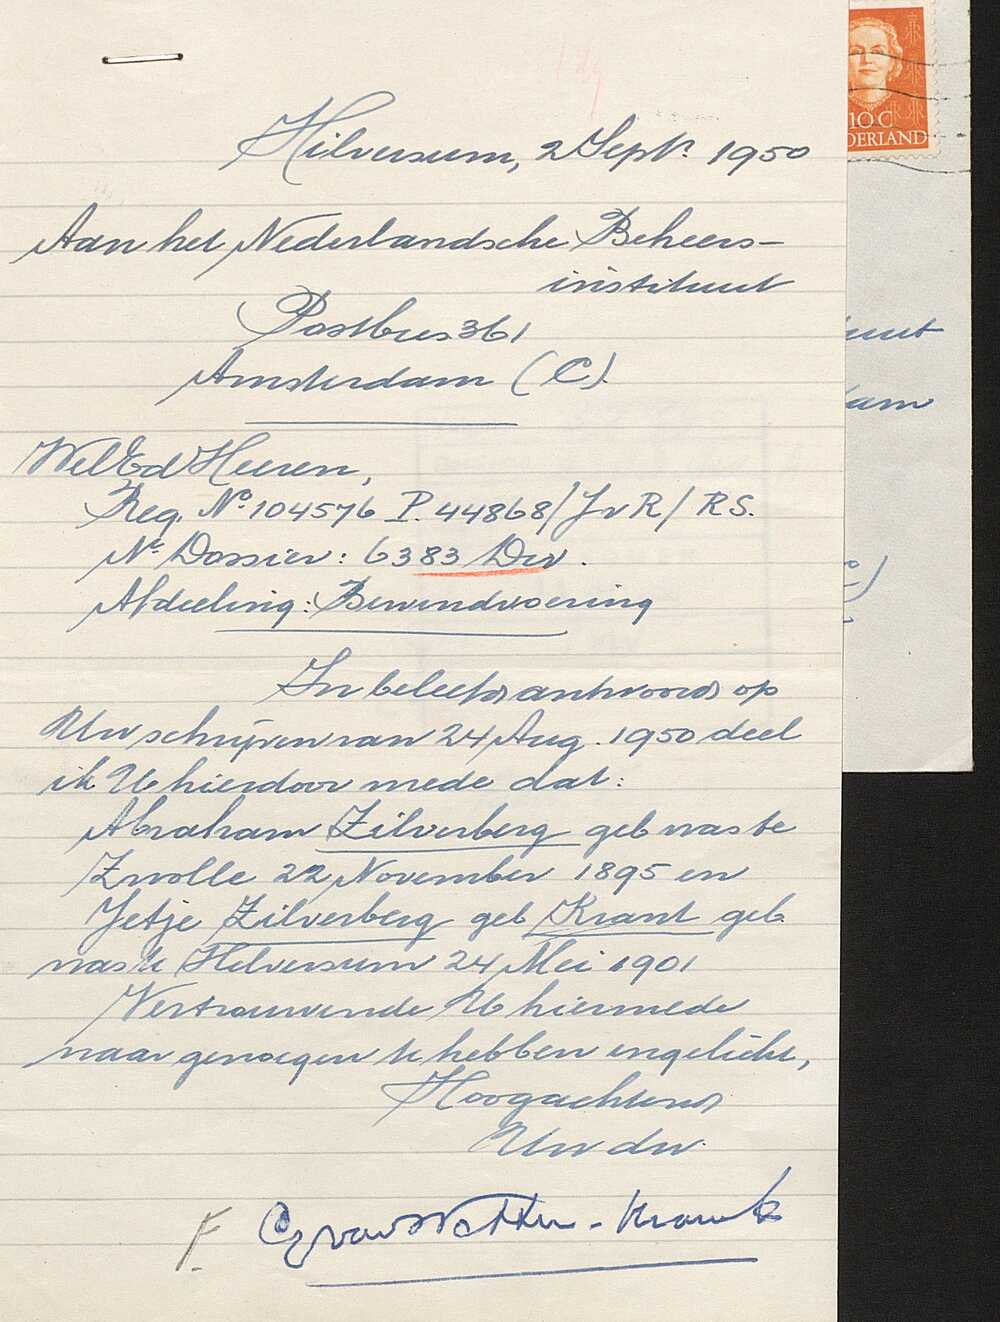 Hilversum, 2 Sept. 1950
Aan het Nederlandsche Beheers-
instituut
Postbus 361
Amsterdam (C).
WelEd Heeren,
Reg. No 104576 P. 44868/JvR/RS.
Nr Dossier: 6383 Dev.
Afdeeling: Bewindvoering
In beleefd antwoord op
Uw schrijven van 24 Aug. 1950 deel
ik U hierdoor mede dat:
Abraham Zilverberg geb was te
Zwolle 22 November 1895 en
Jetje Zilverberg geb Krant geb.
was te Hilversum 24 Mei 1901
Vertrouwende U hiermede
naar genoegen te hebben ingelicht,
Hoogachtend
Uw dw.
F. van Krant
10 C
DERLAND
uut
dam